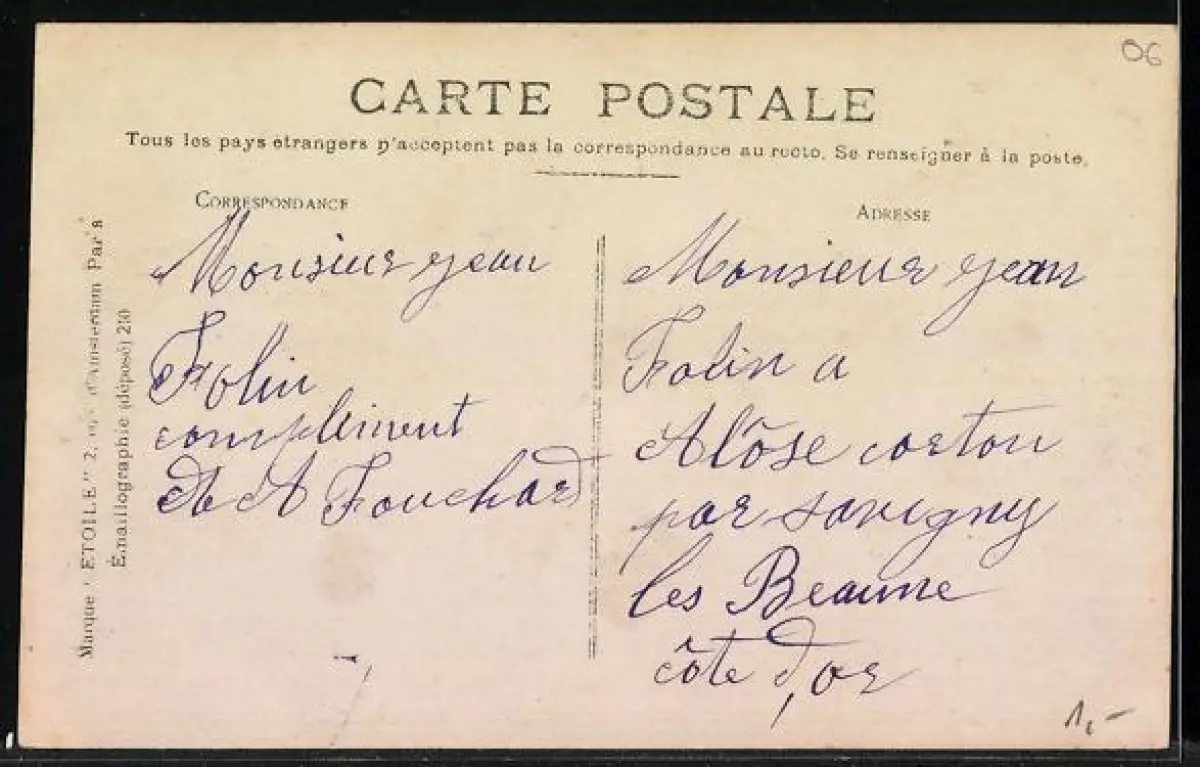 06
CARTE POSTALE
Tous les pays étrangers n'acceptent pas la correspondance au recto. Se renseigner à la poste.
CORRESPONDANCE
Monsieur jean
Folin
compliment
A Fouchard
ADRESSE
Monsieur jean
Folin a
Alôse corton
par savigny
les Beaune
côte d'or
1,-
Marque "ETOILE" 2, Paris
Émaillographie (déposé) 210